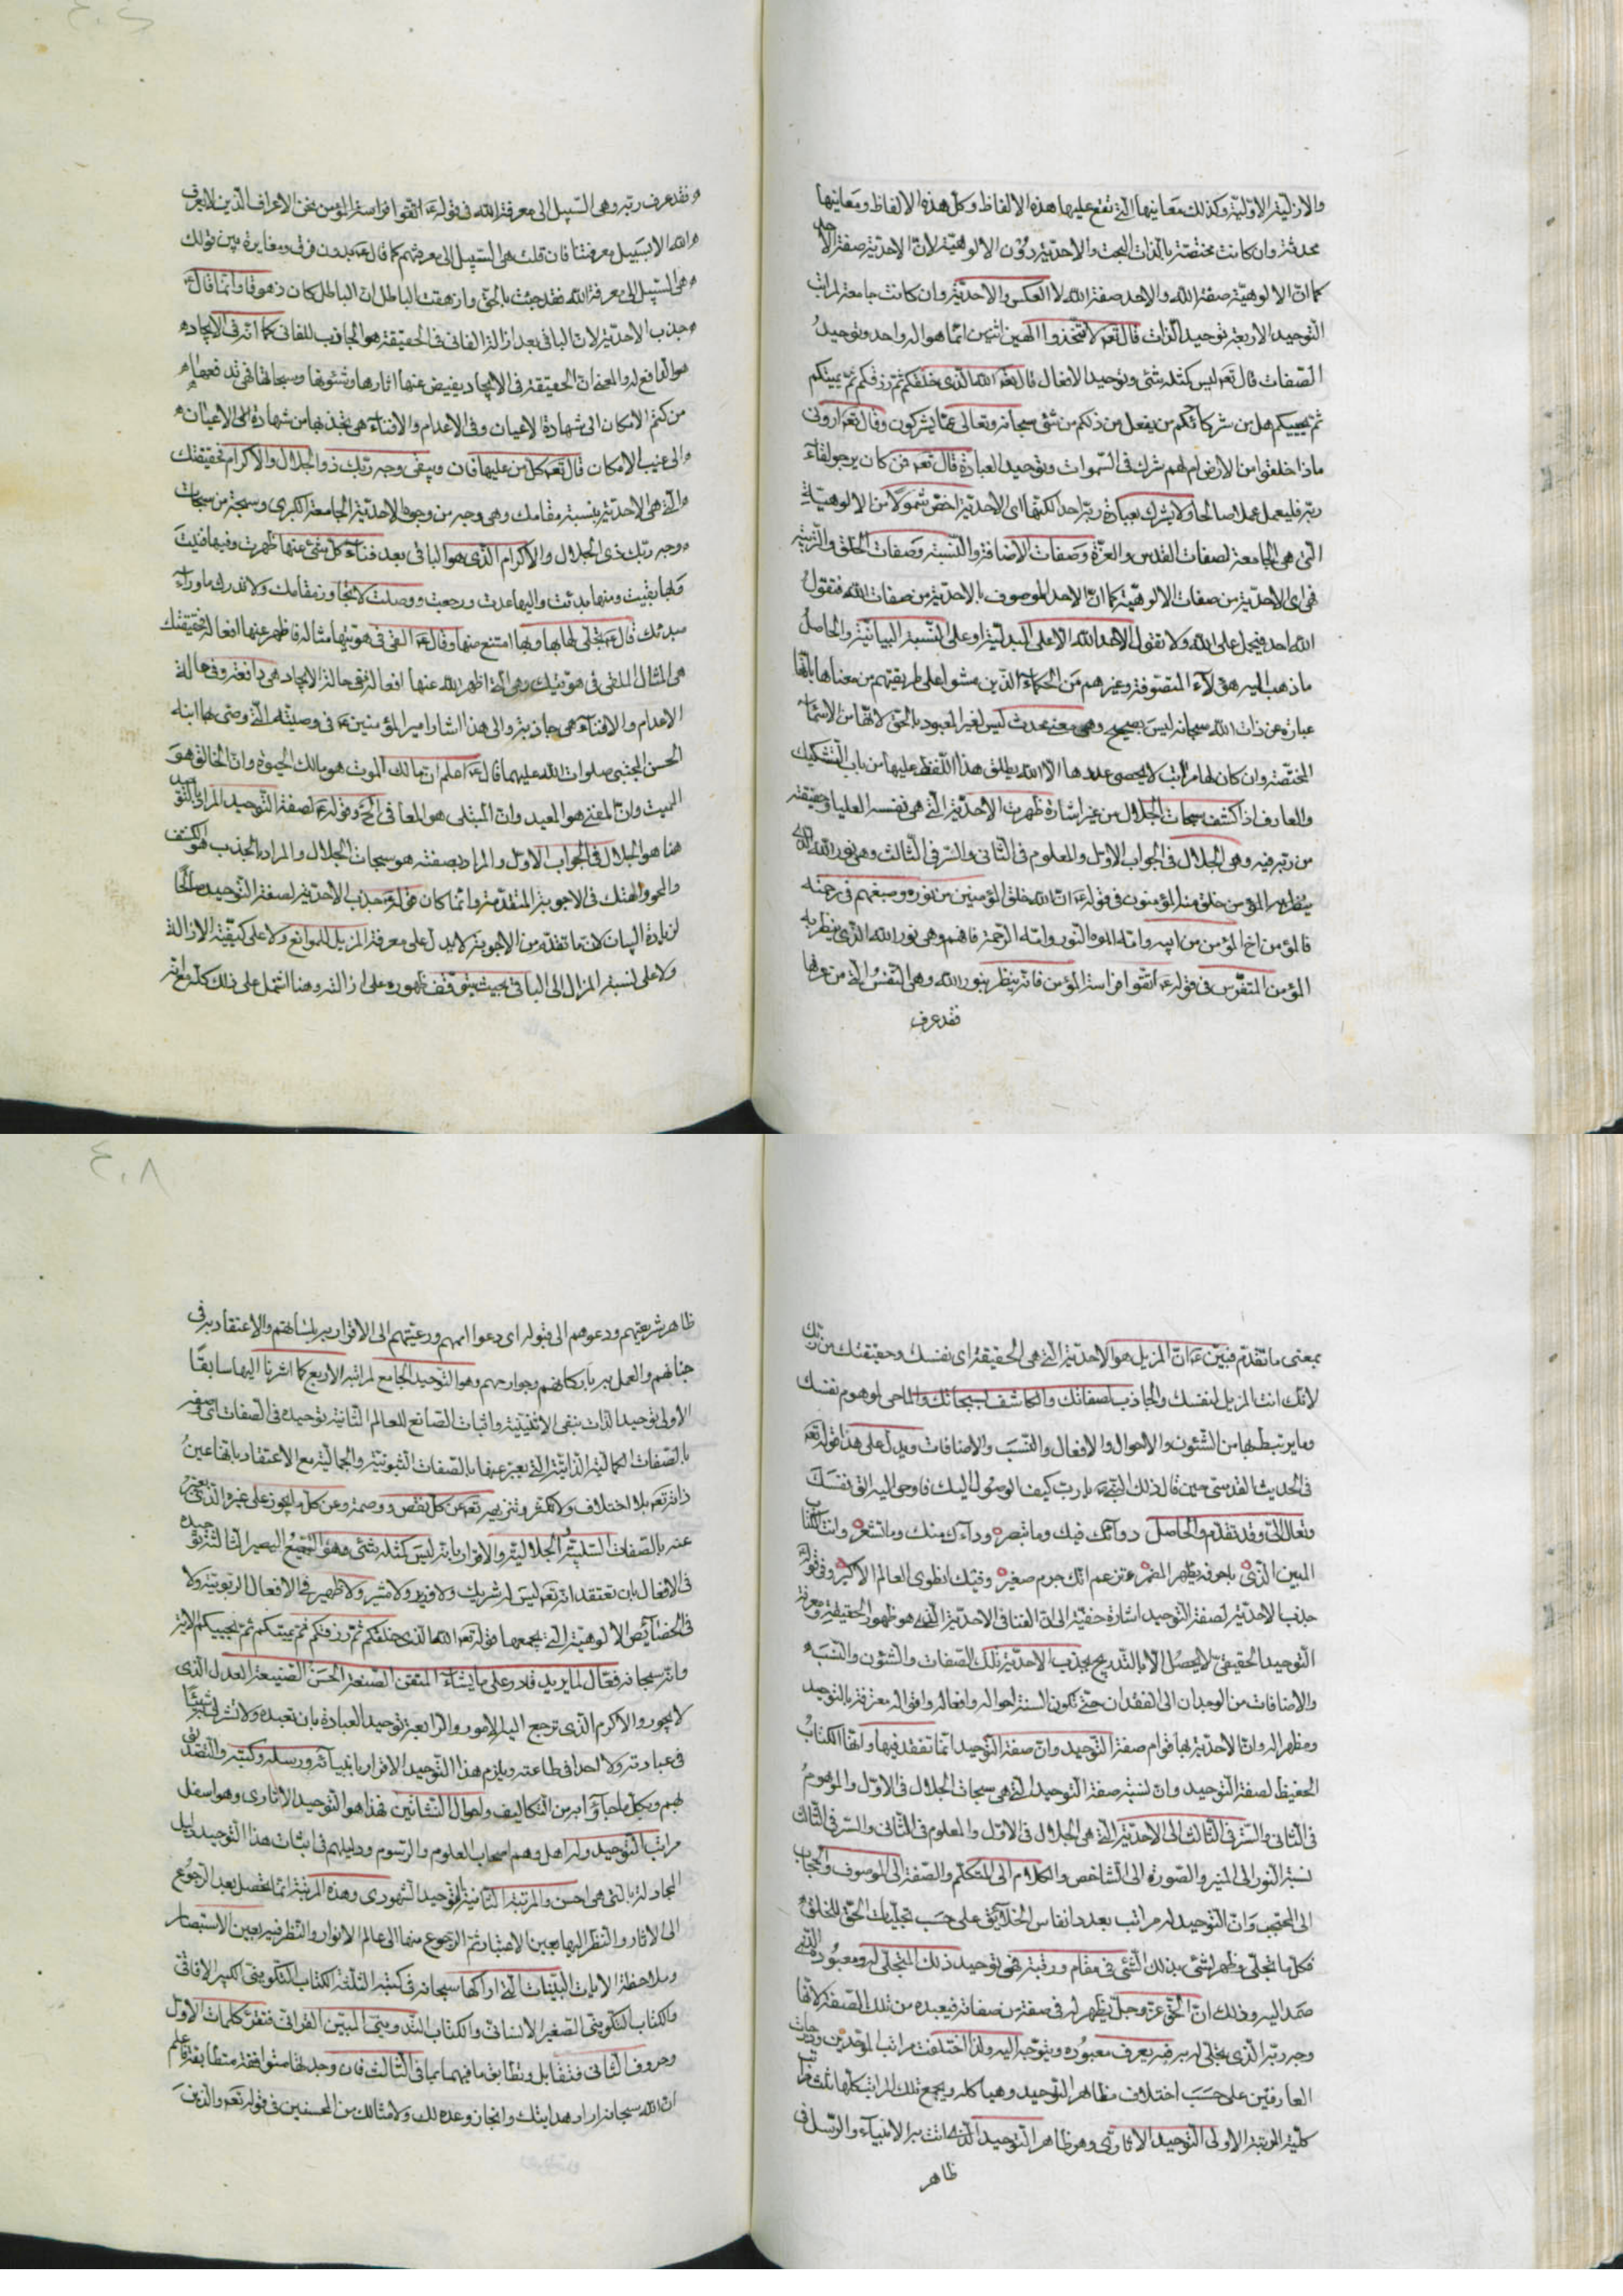 والازليّة الاوليّة وكذلك معانيها الّتي تقع عليها هذه الالفاظ وكلّ هذه الالفاظ ومعانيها
محدثة وان كانت مختصّة بالذات البحت والاحديّة دون الالوهيّة لانّ الاحديّة صفة الاحد
كما انّ الالوهيّة صفة الله والاحد صفة الله لا العكس والاحديّة وان كانت جامعة لمراتب
التوحيد الاربعة توحيد الذات قال تعم لا تتّخذوا الهين اثنين انّما هو اله واحد وتوحيد
الصّفات قال تعم ليس كمثله شئ وتوحيد الافعال قال تعم الله الّذي خلقكم ثمّ رزقكم ثمّ يميتكم
ثمّ يحييكم هل من شركائكم من يفعل من ذلكم من شئ سبحانه وتعالى عمّا يشركون وقال تعم اروني
ماذا خلقوا من الارض ام لهم شرك في السّموات وتوحيد العبادة قال تعم فمن كان يرجو لقاء
ربّه فليعمل عملا صالحا ولا يشرك بعبادة ربّه احدا لكنّها اى الاحديّة اخصّ شمولا من الالوهيّة
الّتي هي الجامعة لصفات القدس والعزّة وصفات الاضافة والنّسبة وصفات الخلق والتّربية
فهي اى الاحديّة من صفات الالوهيّة كما انّ الاحد الموصوف بالاحديّة من صفات الله فتقول
الله احد فيحمل على الله ولا تقول الاحد الله الا على البدليّة او على النّسبة البيانيّة والحاصل
ما ذهب اليه هؤلاء المتصوّفة وغيرهم من الحكماء الّذين مشوا على طريقتهم من معناها بانّها
عبارة عن ذات الله سبحانه ليس بصحيح وهي معنى محدث ليس لغير المعبود بالحقّ لانّها من الاسماء
المختصّة وان كان لها مراتب لا يحصى عددها الا الله يطلق هذا اللّفظ عليها من باب التّشكيك
والعارف اذا كشف سبحات الجلال من غير اشارة ظهرت الاحديّة الّتي هي نفسه العليا وحقيقته
من ربّه فيه وهي الجلال في الجواب الاوّل والمعلوم في الثّاني والسّر في الثّالث وهي نور الله الّذي
ينظر به المؤمن خلق منه المؤمنون في قوله ع انّ الله خلق المؤمنين من نوره وصبغهم في رحمته
فالمؤمن اخ المؤمن من ابيه وامّه ابوه النّور وامّه الرّحمة فافهم وهي نور الله الّذي ينظر به
المؤمن المتفرّس في قوله ع اتّقوا فراسة المؤمن فانّه ينظر بنور الله وهي النّفس الّتي من عرفها
فقد عرف
فقد عرف ربّه وهي السّبيل الى معرفة الله في قوله ع اتّقوا فراسة المؤمن نحن الاعراف الّذين لا يعرف
الله الا بسبيل معرفتنا فان قلت هي السّبيل الى معرفتهم كما قال ع بدون فرق ومغايرة بين قولك
هي السّبيل الى معرفة الله فقد جئت بالحقّ وازهقت الباطل انّ الباطل كان زهوقا وانّما قال ع
جذب الاحديّة لانّ الباقي بعد ازالة الفاني في الحقيقة هو الجاذب للفاني كما انّه في الايجاد
هو الدّافع له والمعنى انّ الحقيقة في الايجاد يفيض عنها اثارها وشئونها وسبحاتها فهي تدفعها
من كتم الامكان الى شهادة الاعيان وفي الاعدام والافناء هي تجذبها من شهادة الاعيان
الى غيب الامكان قال تعم كلّ من عليها فان ويبقى وجه ربّك ذو الجلال والاكرام فحقيقتك
الّتي هي الاحديّة بنسبة مقامك وهي وجه من وجوه الاحديّة الجامعة الكبرى وسبحة من سبحات
وجه ربّك ذى الجلال والاكرام الّذي هو الباقي بعد فناء كلّ شئ عنها ظهرت وفيها فنيت
وبها بقيت ومنها بدئت واليها عدت ورجعت ووصلت لا تتجاوز مقامك ولا تدرك ما وراء
مبدئك قال ع تجلّى لها بها وبها امتنع منها وقال ع القى في هويّتها مثاله فاظهر عنها افعاله فحقيقتك
هي المثال الملقى في هويّتك وهي الّتي اظهر الله عنها افعاله ففي حالة الايجاد هي دافعة وفي حالة
الاعدام والافناء هي جاذبة والى هذا اشار امير المؤمنين ع في وصيّته الّتي وصّى بها ابنه
الحسن المجتبى صلوات الله عليهما قال ع اعلم انّ مالك الموت هو مالك الحيوة وانّ الخالق هو
المميت وانّ المفني هو المعيد وانّ المبتلى هو المعافي الخ وقوله ع لصفة التّوحيد المراد بالتّوحيد
هنا هو الجلال في الجواب الاوّل والمراد بصفته هو سبحات الجلال والمراد بالجذب هو الكشف
والمحو والهتك في الاجوبة المتقدّمة وانّما كان قوله ع جذب الاحديّة لصفة التّوحيد صالحا
لزيادة البيان لانّ ما تقدّم من الاجوبة لا يدلّ على معرفة المزيل للموانع ولا على كيفيّة الازالة
ولا على نسبة المزال الى الباقي بحيث يتوقّف ظهوره على ازالته وهنا اشتمل على ذلك كلّه مع انّه
بمعنى ما تقدّم فبيّن ع انّ المزيل هو الاحديّة الّتي هي الحقيقة اى نفسك وحقيقتك من ربّك
لانّك انت المزيل لنفسك والجاذب لصفاتك والكاشف لسبحاتك والماحي لوهوم نفسك
وما يرتبط بها من الشّئون والاحوال والافعال والنّسب والاضافات ويدلّ على هذا قوله تعم
في الحديث القدسي حين قال ذلك النّبي ع يا ربّ كيف الوصول اليك فاوحى اليه الق نفسك
وتعال الىّ وقد تقدّم والحاصل دواؤك فيك وما تبصر وداءك منك وما تشعر وانت الكتاب
المبين الّذي باحرفه يظهر المضمر وتزعم انّك جرم صغير وفيك انطوى العالم الاكبر وفي قوله
جذب الاحديّة لصفة التّوحيد اشارة خفيّة الى انّ الفنا في الاحديّة الّذي هو ظهور الحقيقة ومعرفة
التّوحيد الحقيقي لا يحصل الا بالتّدريج بجذب الاحديّة تلك الصّفات والشّئون والنّسب
والاضافات من الوجدان الى الفقدان حتّى تكون السنة احواله وافعاله واقواله معترفة بالتّوحيد
ومظهرا له وانّ الاحديّة بها قوام صفة التّوحيد وانّ صفة التّوحيد انّما تفقد فيها وانّها الكتاب
الحفيظ لصفة التّوحيد وانّ نسبة صفة التّوحيد الّتي هي سبحات الجلال في الاوّل والموهوم
في الثّاني والسّتر في الثّالث الى الاحديّة الّتي هي الجلال في الاوّل والمعلوم في الثّاني والسّر في الثّالث
نسبة النّور الى المنير والصّورة الى الشّاخص والكلام الى المتكلّم والصّفة الى الموصوف والحجاب
الى المحتجب وانّ التّوحيد له مراتب بعدد انفاس الخلائق على حسب تجلّيات الحقّ للخلق
فكلّ ما تجلّى وظهر لشئ بذلك الشّئ في مقام ورتبة فهي توحيد ذلك المتجلّى له ومعبوده الّذي
صمد اليه وذلك انّ الحقّ عزّ وجلّ يظهر له في صفة من صفاته فيعبده من تلك الصّفة لانّها
وجه ربّه الّذي تجلّى له به فيه يعرف معبوده ويتوجّه اليه ولذا اختلفت مراتب الموحّدين ودرجات
العارفين على حسب اختلاف مظاهر التّوحيد وهياكله ويجمع تلك المراتب كلّها ثلث مراتب
كليّة المرتبة الاولى التّوحيد الاثاري وهو ظاهر التّوحيد الّذي اتت به الانبياء والرّسل في
ظاهر
ظاهر شريعتهم ودعوهم الى قبوله اى دعوا اممهم ورعيّتهم الى الاقرار به بلسانهم والاعتقاد به في
جنانهم والعمل به باركانهم وجوارحهم وهو التّوحيد الجامع لمراتبه الاربع كما اشرنا اليها سابقا
الاولى توحيد الذات بنفي الاثنينيّة واثبات الصّانع للعالم الثّانية توحيده في الصّفات اى وصفه
بالصّفات الكماليّة الذاتيّة الّتي يعبّر عنها بالصّفات الثّبوتيّة والجماليّة مع الاعتقاد بانّها عين
ذاته تعم بلا اختلاف ولا تكثّر وتنزيهه تعم عن كلّ نقص ووصمة وعن كلّ ما يجوز على غيره الّذي يعبّر
عنه بالصّفات السّلبيّة الجلاليّة والاقرار بانّه ليس كمثله شئ وهو السّميع البصير الثّالثة توحيده
في الافعال بان تعتقد انّه تعم ليس له شريك ولا وزير ولا مشير ولا ظهير في الافعال الرّبوبيّة ولا
في الخصائص الالوهيّة الّتي يجمعها قوله تعم الله الّذي خلقكم ثمّ رزقكم ثمّ يميتكم ثمّ يحييكم الاية
وانّه سبحانه فعّال لما يريد قادر على ما يشاء المتقن الصّنعة الحسن الصّنيعة العدل الّذي
لا يجور والاكرم الّذي ترجع اليه الامور والرّابعة توحيد العبادة بان تعبده ولا تشرك شيئا
في عبادته ولا احدا في طاعته ويلزم هذا التّوحيد الاقرار بانبيائه ورسله وكتبه والتّصديق
بهم وبكلّ ما جاؤا به من التّكاليف واحوال النّشاتين فهذا هو التّوحيد الاثاري وهو اسفل
مراتب التّوحيد وله اهل وهم اصحاب العلوم والرّسوم ودليلهم في اثبات هذا التّوحيد دليل
المجادلة بالّتي هي احسن والمرتبة الثّانية التّوحيد الشّهودي وهذه المرتبة انّما تحصل بعد الرّجوع
الى الاثار والنّظر اليها بعين الاعتبار ثمّ الرّجوع منها الى عالم الانوار والنّظر فيه بعين الاستبصار
وملاحظة الايات البيّنات الّتي اراكها سبحانه في كتبه الثّلثة الكتاب التّكويني الكبير الافاقي
والكتاب التّكويني الصّغير الانساني والكتاب التّدويني المبين القراني فتقرء كلمات الاوّل
وحروف الثّاني فتقابل وتطابق ما فيهما بما في الثّالث فان وجدتها متوافقة متطابقة فاعلم
انّ الله سبحانه اراد هدايتك وانجاز وعده لك ولامثالك من المحسنين في قوله تعم والّذين